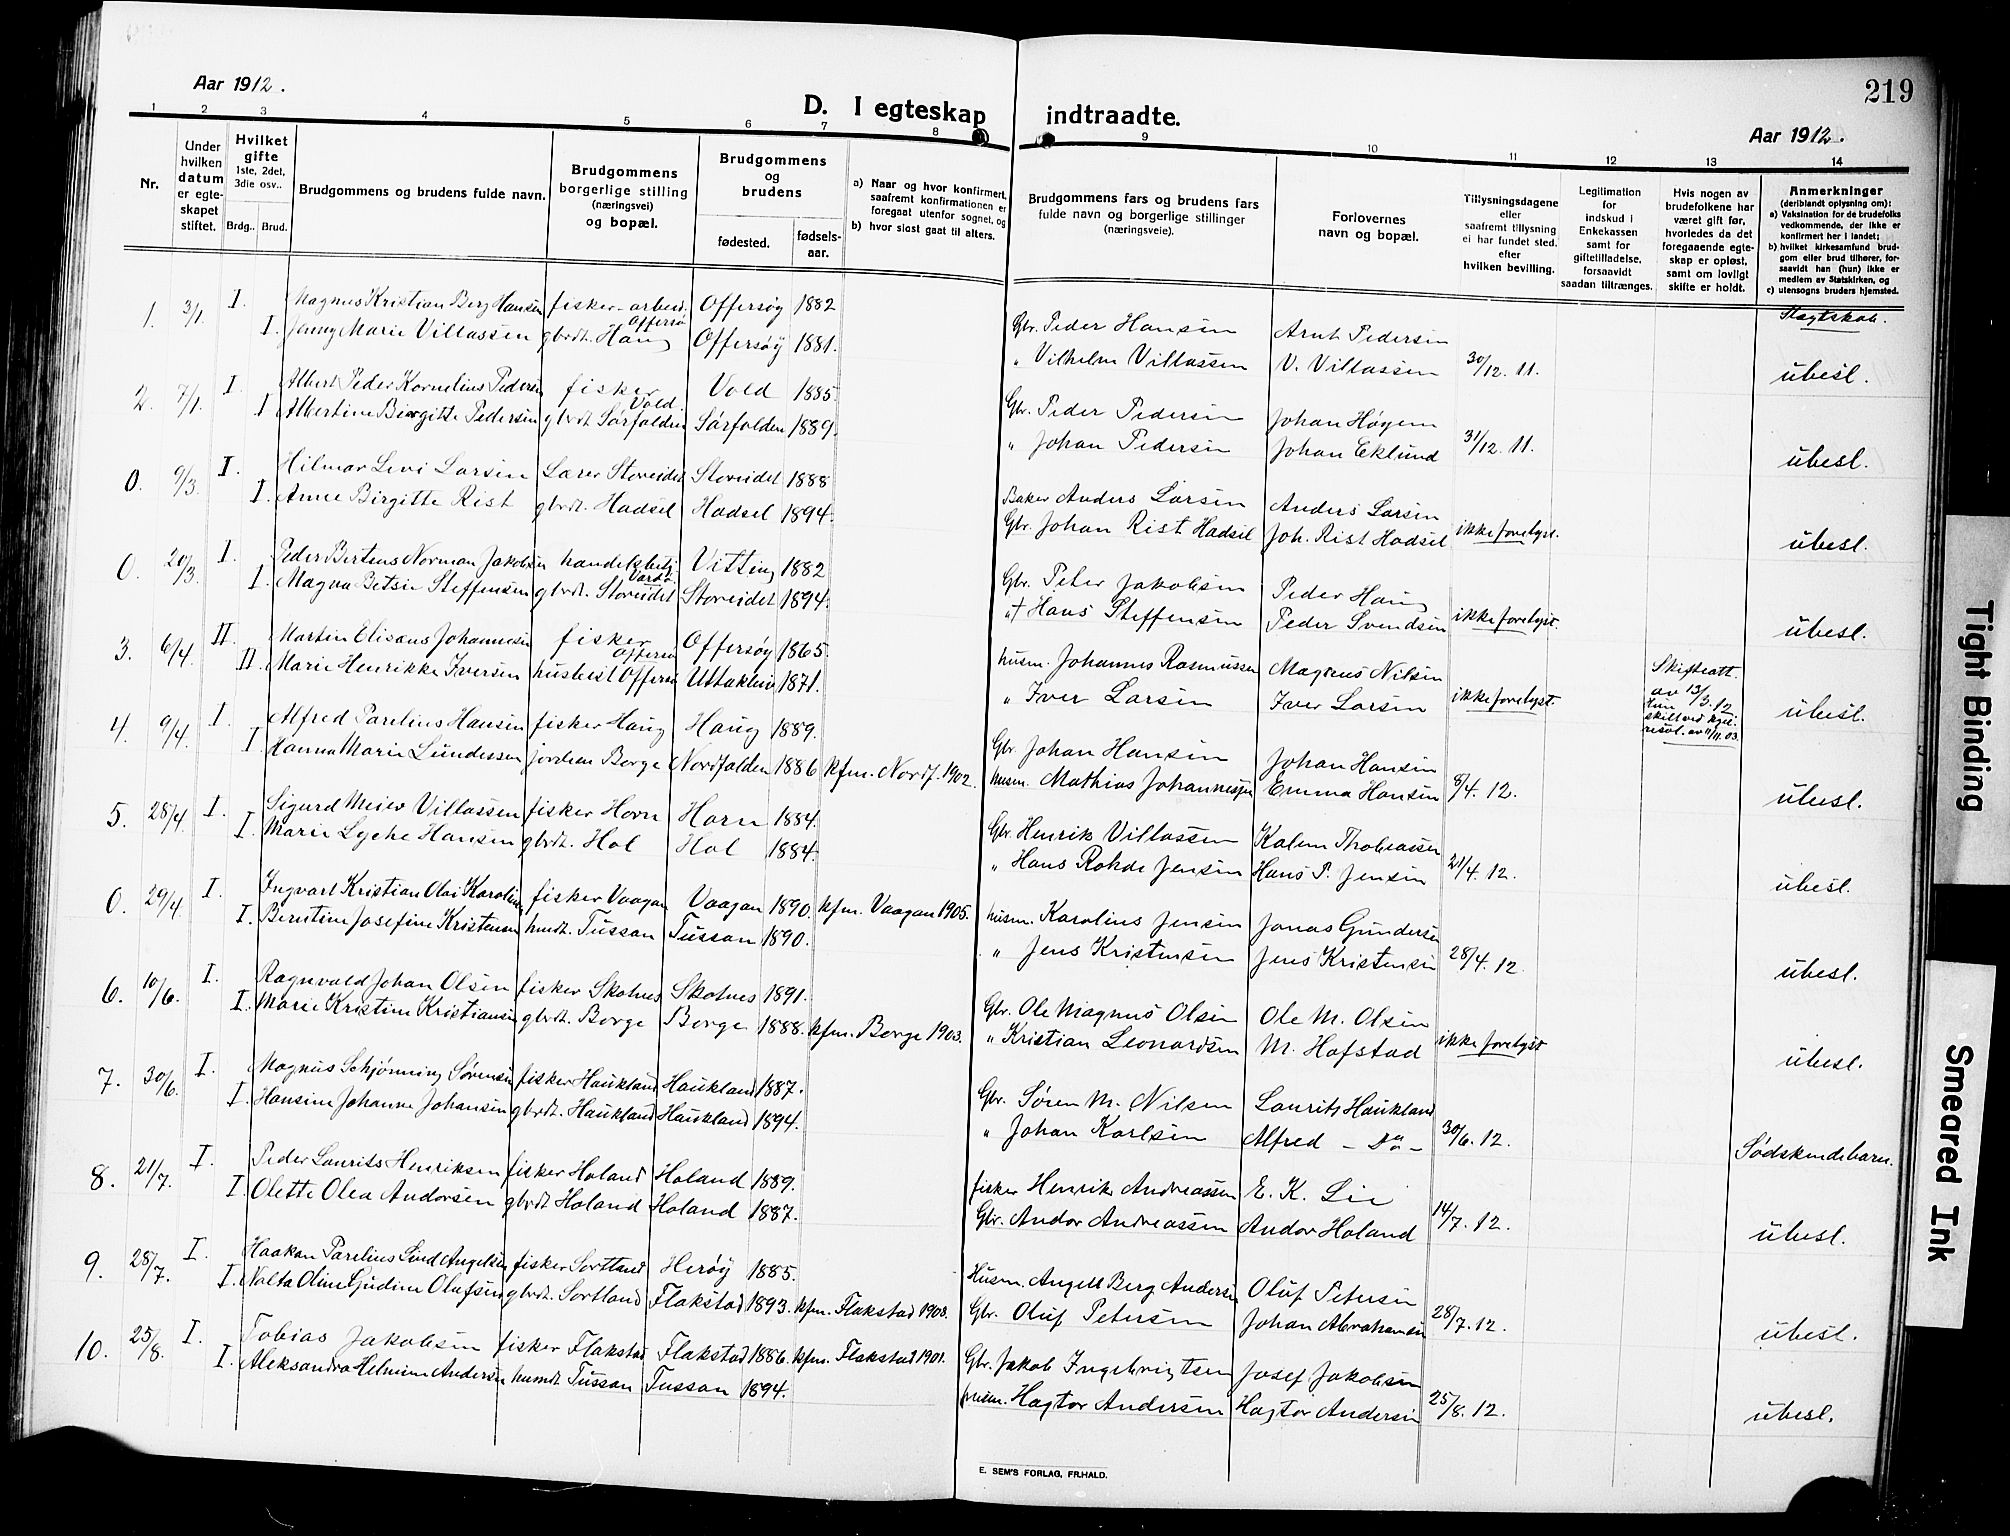 219
Aar 1912.
D. I egteskap indtraadte.
Aar 1912.
1 2 3 4 5 6 7 8 9 10 11 12 13 14
Nr.
Under hvilken datum er egte-skapet stiftet.
Hvilket gifte 1ste, 2det, 3die osv..
Brdg.. Brud.
Brudgommens og brudens fulde navn.
Brudgommens borgerlige stilling (næringsvei) og bopæl.
Brudgommens og brudens
fødested. fødsels-aar.
a) Naar og hvor konfirmert, saafremt konfirmationen er foregaat utenfor sognet, og
b) hvor sidst gaat til alters.
Brudgommens fars og brudens fars fulde navn og borgerlige stillinger (næringsveie).
Forlovernes navn og bopæl.
Tillysningsdagene eller saafremt tillysning ei har fundet sted. efter hvilken bevilling.
Legitimation for indskud i Enkekassen samt for giftetilladelse, forsaavidt saadan tiltrænges.
Hvis nogen av brudefolkene har været gift før, hvorledes da det foregaaende egte-skap er opløst, samt om lovligt skifte er holdt.
Anmerkninger (deriblandt oplysning om):
a) Vaksination for de brudefolks vedkommende, der ikke er konfirmert her i landet;
b) hvilket kirkesamfund brud-gom eller brud tilhører, for-saavidt han (hun) ikke er medlem av Statskirken, og
c) utensogns bruders hjemsted.
Slegtskab.
1. 3/1. I. Magnus Kristian Berg Hansen fisker-arbeid. Offersø Offersøy 1882 Gbr. Peder Hansen Arnt Pedersen
I. Jenny Marie Villassen gbrdt. Haug Offersøy 1881. " Vilhelm Villassen V. Villassen 30/12. 11. ubesl.
2. 7/1. I. Albert Peder Kornelius Pedersen fisker Vold. Vold 1885 Gbr. Peder Pedersen Johan Høyem
I Albertine Birgitte Pedersen gbrdt. Sørfolden Sørfolden 1889. " Johan Pedersen Johan Eklund 31/12. 11. ubesl.
0. 9/3. I. Hilmar Levi Larsen Lærer Storeidet Storeidet 1888 Baker Anders Larsen Anders Larsen
I. Anne Birgitte Rist gbrdt. Hadsel Hadsel 1894. Gbr. Johan Rist Hadsel Joh. Rist Hadsel ikke forelyst. ubesl.
0. 20/3. I. Peder Bertens Norman Jakobsen handelsbetj. Vardø. Vitting 1882 Gbr. Peter Jakobsen Peder Haug
I. Magna Betsie Steffensen gbrdt. Storeidet Storeidet 1894. " † Hans Steffensen Peder Svendsen ikke forelyst. ubesl.
3. 6/4. II. Martin Elisæus Johannesen fisker Offersø Offersøy 1865. husm. Johannes Rasmussen Magnus Nilsen Skifteatt. av 13/3. 12
II. Marie Henrikke Iversen husbest Offersø Uttakleiv 1871. " Iver Larsen Iver Larsen ikke forelyst. Hun skilt ved kgel. resol. av 11/11. 03. ubesl.
4. 9/4. I. Alfred Parelius Hansen fisker Haug Haug 1889. Gbr. Johan Hansen Johan Hansen
I. Hanna Marie Lundessen Borge Nordfolden 1886 kfm. Nordf. 1902. husm. Mathias Johannessen Emma Hansen 8/4. 12. ubesl.
5. 28/4. I. Sigurd Meier Villassen fisker Horn Horn 1884. Gbr. Henrik Villassen Kalem Thobiassen
I. Marie Lyche Hansen gbrdt. Hol Hol 1884. " Hans Rohde Jensen Hans P. Jensen 21/4. 12. ubesl.
0. 29/4. I. Ingvart Kristian Olai Karolius fisker Vaagan Vaagan 1890. kfm. Vaagan 1905. husm. Karolius Jensen Jonas Gundersen
I. Berntine Josefine Kristensen hmdt. Tussan Tussan 1890. " Jens Kristensen Jens Kristensen 28/4. 12. ubesl.
6. 10/6. I. Ragnvald Johan Olsen fisker Skotnes Skotnes 1891. Gbr. Ole Magnus Olsen Ole M. Olsen
I. Marie Kristine Kristiansen gbrdt. Borge Borge 1888. kfm. Borge 1903. " Kristian Leonardsen M. Hofstad ikke forelyst ubesl.
7. 30/6. I. Magnus Schjønning Sørensen fisker Haukland Haukland 1887. Gbr. Søren M. Nilsen Laurits Haukland
I. Hansine Johanne Johansen gbrdt. Haukland Haukland 1894. " Johan Karlsen Alfred – Do – 30/6. 12. Sødskendebarn.
8. 21/7. I. Peder Laurits Henriksen fisker Holand Holand 1889. fisker Henrik Andreassen E. K. Lie
I. Olette Olea Andorsen gbrdt Holand Holand 1887. Gbr. Andor Andreassen Andor Holand 14/7. 12. ubesl.
9. 28/7. I. Haakon Parelius Lind Angelsen fisker Sortland Herøy 1885. Husm. Angell Berg Andersen Oluf Petersen
I. Nolta Oline Gudine Olufsen gbrdt. Sortland Flakstad 1893. kfm. Flakstad 1908. Gbr. Oluf Petersen Johan Abrahamsen 28/7. 12. ubesl.
10. 25/8. I. Tobias Jakobsen fisker Flakstad Flakstad 1886. kfm. Flakstad 1901. Gbr. Jakob Ingebrigtsen Josef Jakobsen
I. Aleksandra Helmine Andersen husmdt Tussan Tussan 1894. husm. Hagtor Andersen Hagtor Andersen 25/8. 12. ubesl.
E. SEM'S FORLAG, FR.HALD.
Tight Binding
Smeared Ink